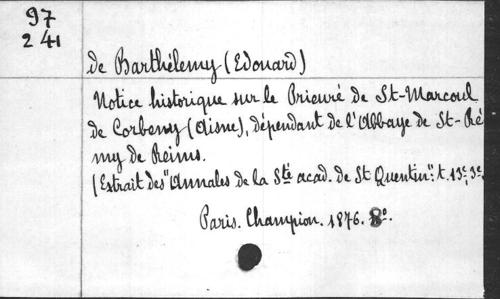 97
241
de Barthélemy (Edouard)
Notice historique sur le Prieuré de St-Marcoul
de Corbeny (Aisne), dépendant de l'Abbaye de St-Ré
my de Reims.
(Extrait des "Annales de la Sté acad. de St Quentin": t. 13e, 3e.
Paris. Champion. 1876. 8o.